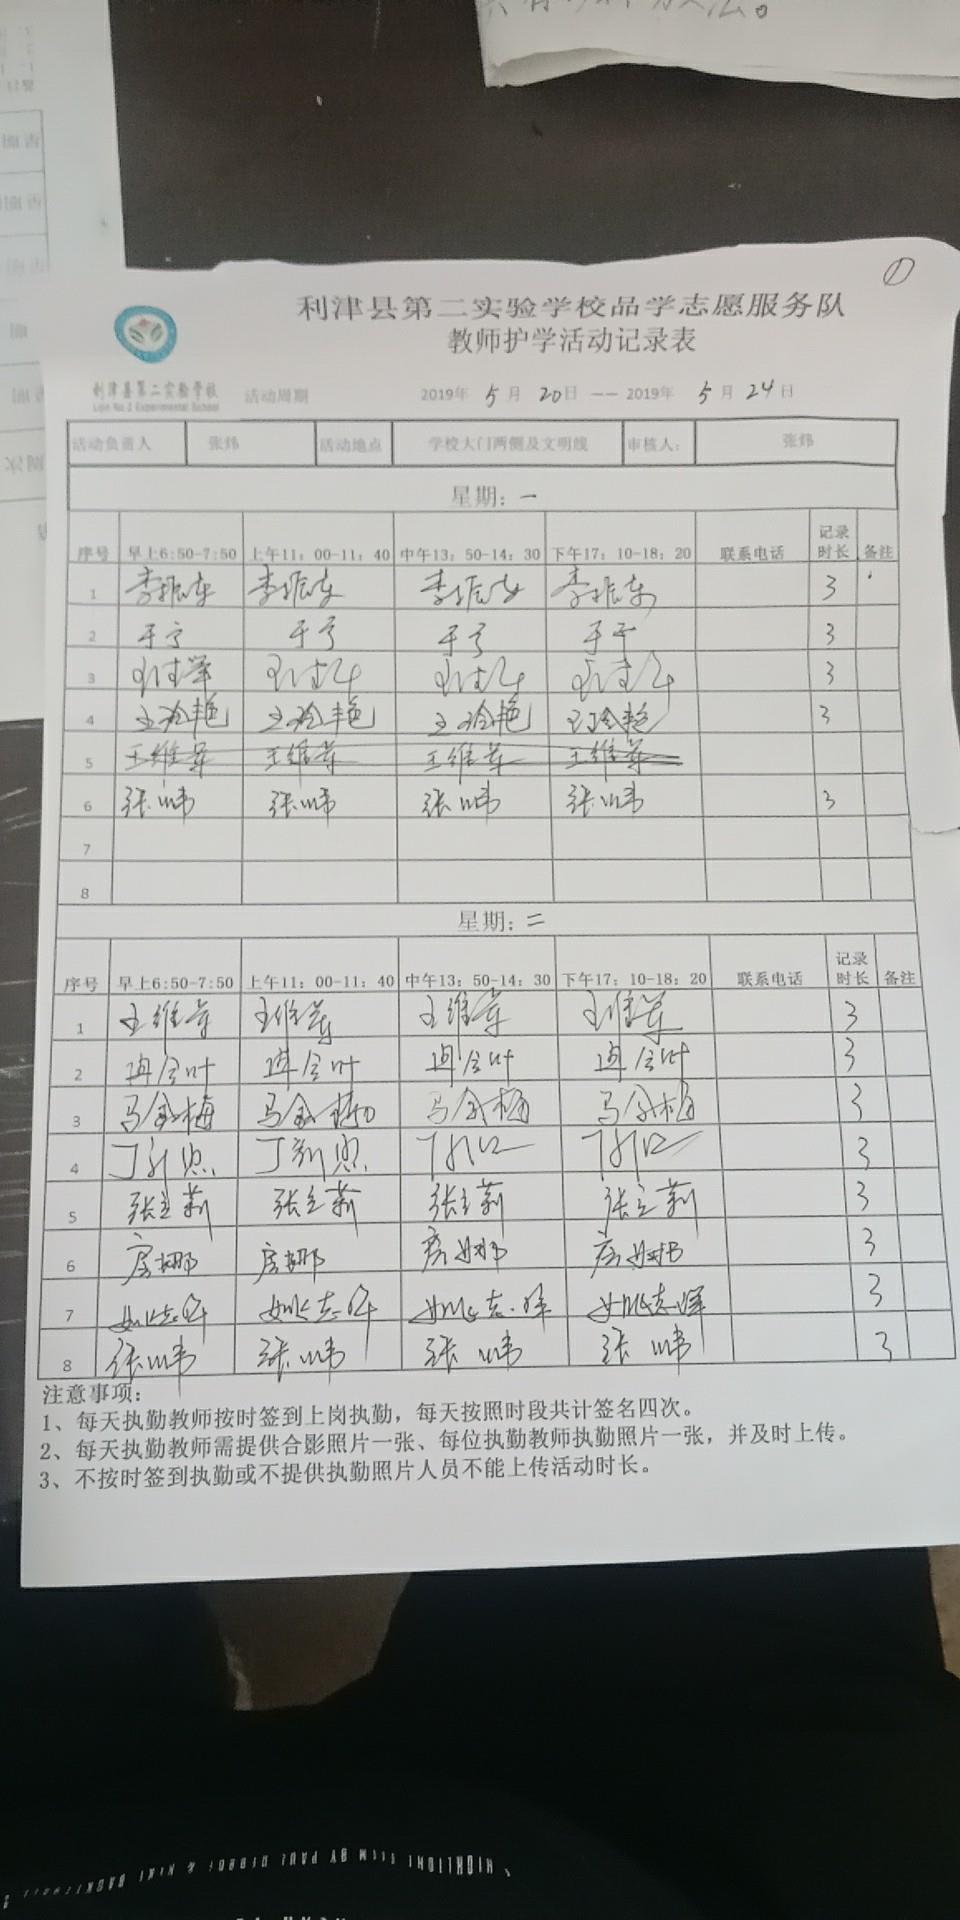 ①
利津县第二实验学校品学志愿服务队
教师护学活动记录表
利津县第二实验学校
活动周期 2019年 5 月 20日 —— 2019年 5 月 24 日
活动负责人 张炜 活动地点 学校大门两侧及文明线 审核人: 张炜
星期: 一
序号 早上6:50-7:50 上午11: 00-11: 40 中午13: 50-14: 30 下午17: 10-18: 20 联系电话 记录时长 备注
1 李振东 李振东 李振东 李振东 3
2 于亭 于亭 于亭 于亭 3
3 3
4 王玲艳 王玲艳 王玲艳 王玲艳 3
5 王维军 王维军 王维军 王维军
6 张炜 张炜 张炜 张炜 3
7
8
星期: 二
序号 早上6:50-7:50 上午11: 00-11: 40 中午13: 50-14: 30 下午17: 10-18: 20 联系电话 记录时长 备注
1 王维军 王维军 王维军 王维军 3
2 3
3 马金梅 马金梅 马金梅 马金梅 3
4 3
5 张立莉 张立莉 张立莉 张立莉 3
6 房娜 房娜 房娜 房娜 3
7 姚志晖 姚志晖 姚志晖 姚志晖 3
8 张炜 张炜 张炜 张炜 3
注意事项:
1、每天执勤教师按时签到上岗执勤，每天按照时段共计签名四次。
2、每天执勤教师需提供合影照片一张、每位执勤教师执勤照片一张，并及时上传。
3、不按时签到执勤或不提供执勤照片人员不能上传活动时长。